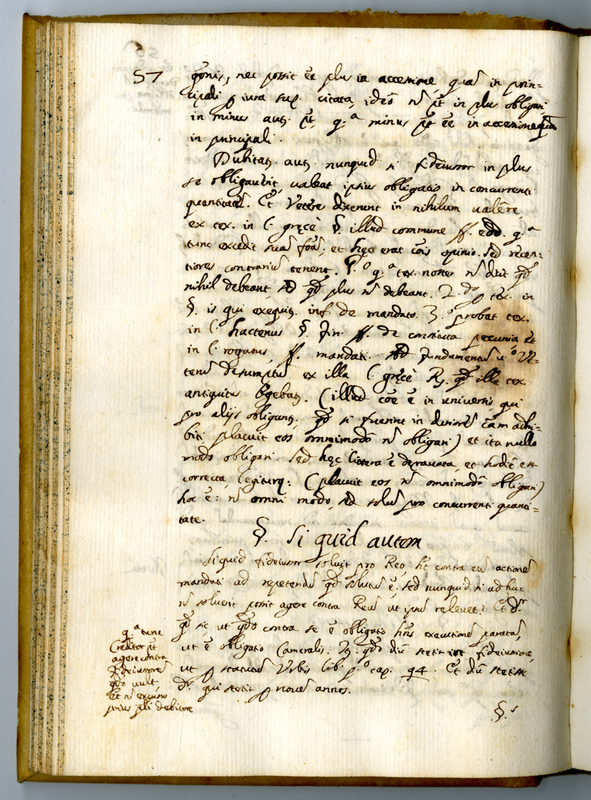 57
nec possit eē plus in accessione quā in prin-
cipali p iura sup. citata, ideò ñ pt in plus obligari
in minus aut. pt, q.ᵃ minus pt eē in accessione quā
in principali.
Dubitat. aut. nunquid si fideiussor in plus
se obligauerit, valeat ipsius obligatio in concurrenti
quantitate. Et Veteres dixerunt in nihilum valere
ex tex. in l. grecè §. illud commune ff. eod. q.ᵃ
tunc excedit suā et hęc erat cōis opinio. Sed recen-
tiores contrariū tenent. P.º q.ᵃ tex. noster ñ dicit qd
nihil debeant, sed qd plus ñ debeant. 2.º p tex. in
§. is qui exequit. inf. de mandato. 3.º probat tex.
in l. hactenus §. fin. ff. de constituta pecunia et
in l. rogatus ff. mandati. Sed fundamentū Ve-
terū desumptū ex illa l. grecè R. qd ille tex.
antiquitus legebat. (illud cōe ē in universis qui
pro alijs obligant. qd si fuerint in duriorē cām adhi-
biti placuit eos omnimodò ñ obligari) et ita nullo
modo obligari. Sed hęc littera ē deprauata, et hodiè est
correcta, legiturq: (placuit eos ñ omnimodò obligari)
hoc ē: ñ omni modo, sed solū pro concurrenti quanti-
tate.
§. Si quid autem
Si quid fideiussor soluit pro Reo hēt contra eū actionē
mandati ad repetendū qd solutū ē. Sed nunquid si ad huc
ñ soluerit possit agere contra Reū ut ipsū releuet? Et dr
sic ut qdo contra se ē obligatio hñs executionē paratā,
ut ē obligatio Cameralis. 3. qdo diù stetit fideiussione,
ut p statutū Urbis lib. p.º cap. 94. Et diù stetisse
dr qui stetit p nouem annos.
q.ᵃ tunc
Creditor pt
agere contra
fideiussorē
qdo uult,
et ñ
prius debitore
§.